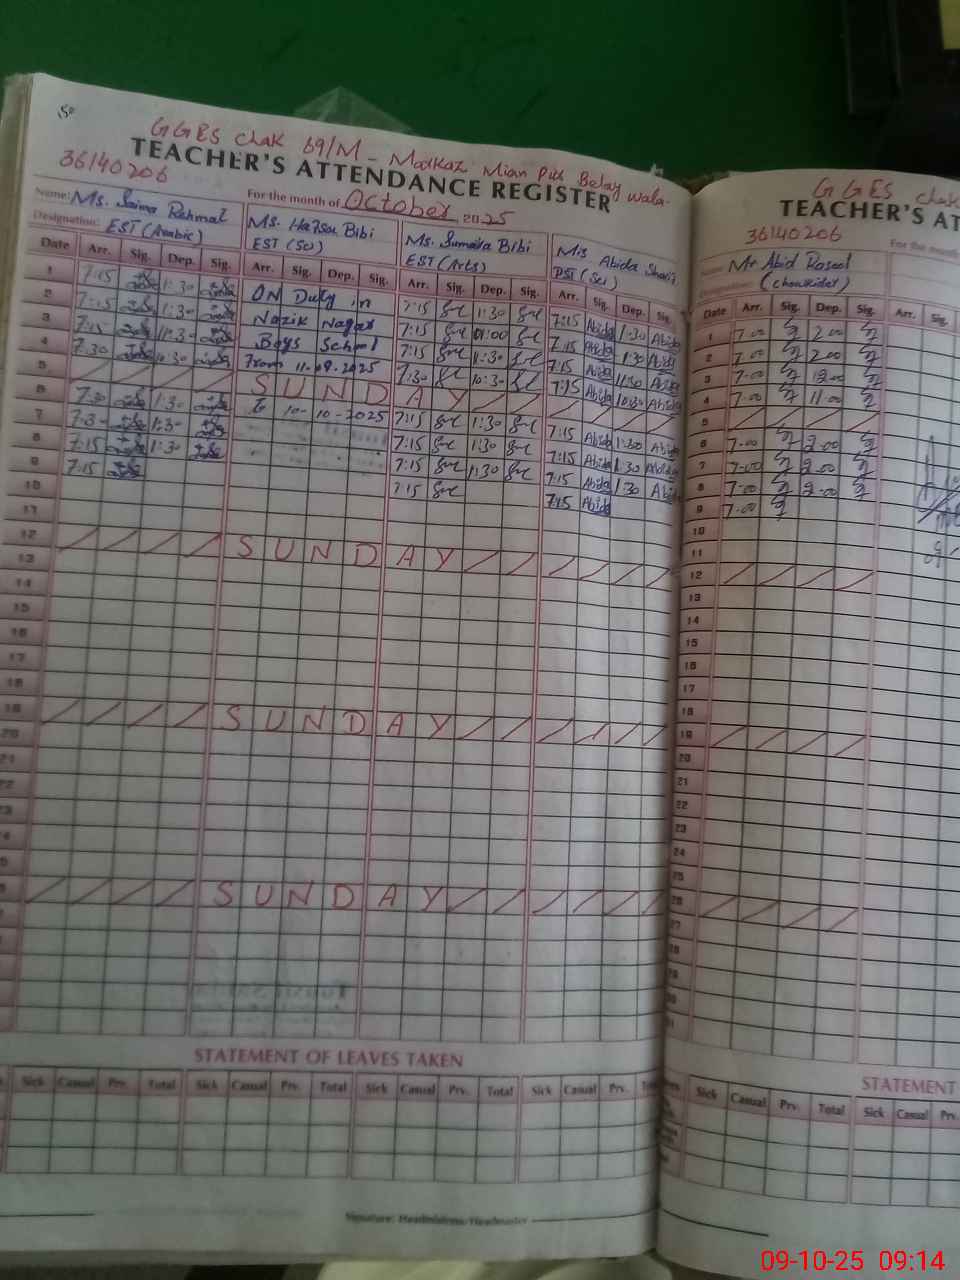 GGES Chak 69/M - Markaz Mian Pur Belay wala.
TEACHER'S ATTENDANCE REGISTER
36140206
Name: Ms. Saima Rahmat
For the month of October 2025
Designation: EST (Arabic)
Ms. Hafsa Bibi
EST (Sc)
Ms. Sumaira Bibi
EST (Arts)
Mis Abida Sharif
PST (Sci)
Date Arr. Sig. Dep. Sig. Arr. Sig. Dep. Sig. Arr. Sig. Dep. Sig. Arr. Sig. Dep. Sig.
1 7:15 1:30 ON Duty in 7:15 1:30 7:15 Abida 1:30 Abida
2 7:15 1:30 Nazik Nagar 7:15 7:15 Abida 1:30 Abida
3 7:15 11:30 Boys School 7:15 11:30 7:15 Abida 11:30 Abida
4 7:30 10:30 From 7:30 10:30 7:15 Abida 10:30 Abida
5 S U N D A Y
6 7:30 1:30 To 10-10-2025 7:15 1:30 7:15 Abida 1:30 Abida
7 7:30 1:30 7:15 1:30 7:15 Abida 1:30 Abida
8 7:15 1:30 7:15 1:30 7:15 Abida 1:30 Abida
9 7:15 7:15 7:15 Abida
10
11
12 S U N D A Y
13
14
15
16
17
18
19 S U N D A Y
20
21
22
23
24
25
26 S U N D A Y
STATEMENT OF LEAVES TAKEN
Sick Casual Prv. Total Sick Casual Prv. Total Sick Casual Prv. Total Sick Casual Prv.
Signature: Headmistress/Headmaster
GGES Chak
TEACHER'S AT
36140206
For the month
Name: Mr Abid Rasool
Designation: (Chowkidar)
Date Arr. Sig. Dep. Sig. Arr. Sig.
1 7:00 2:00
2 7:00 2:00
3 7:00 12:00
4 7:00 11:00
5
6 7:00 2:00
7 7:00 2:00
8 7:00 2:00
9 7:00
10
11
12
13
14
15
16
17
18
19
20
21
22
23
24
25
26
27
28
29
30
31
STATEMENT
Sick Casual Prv. Total Sick Casual Prv.
09-10-25 09:14